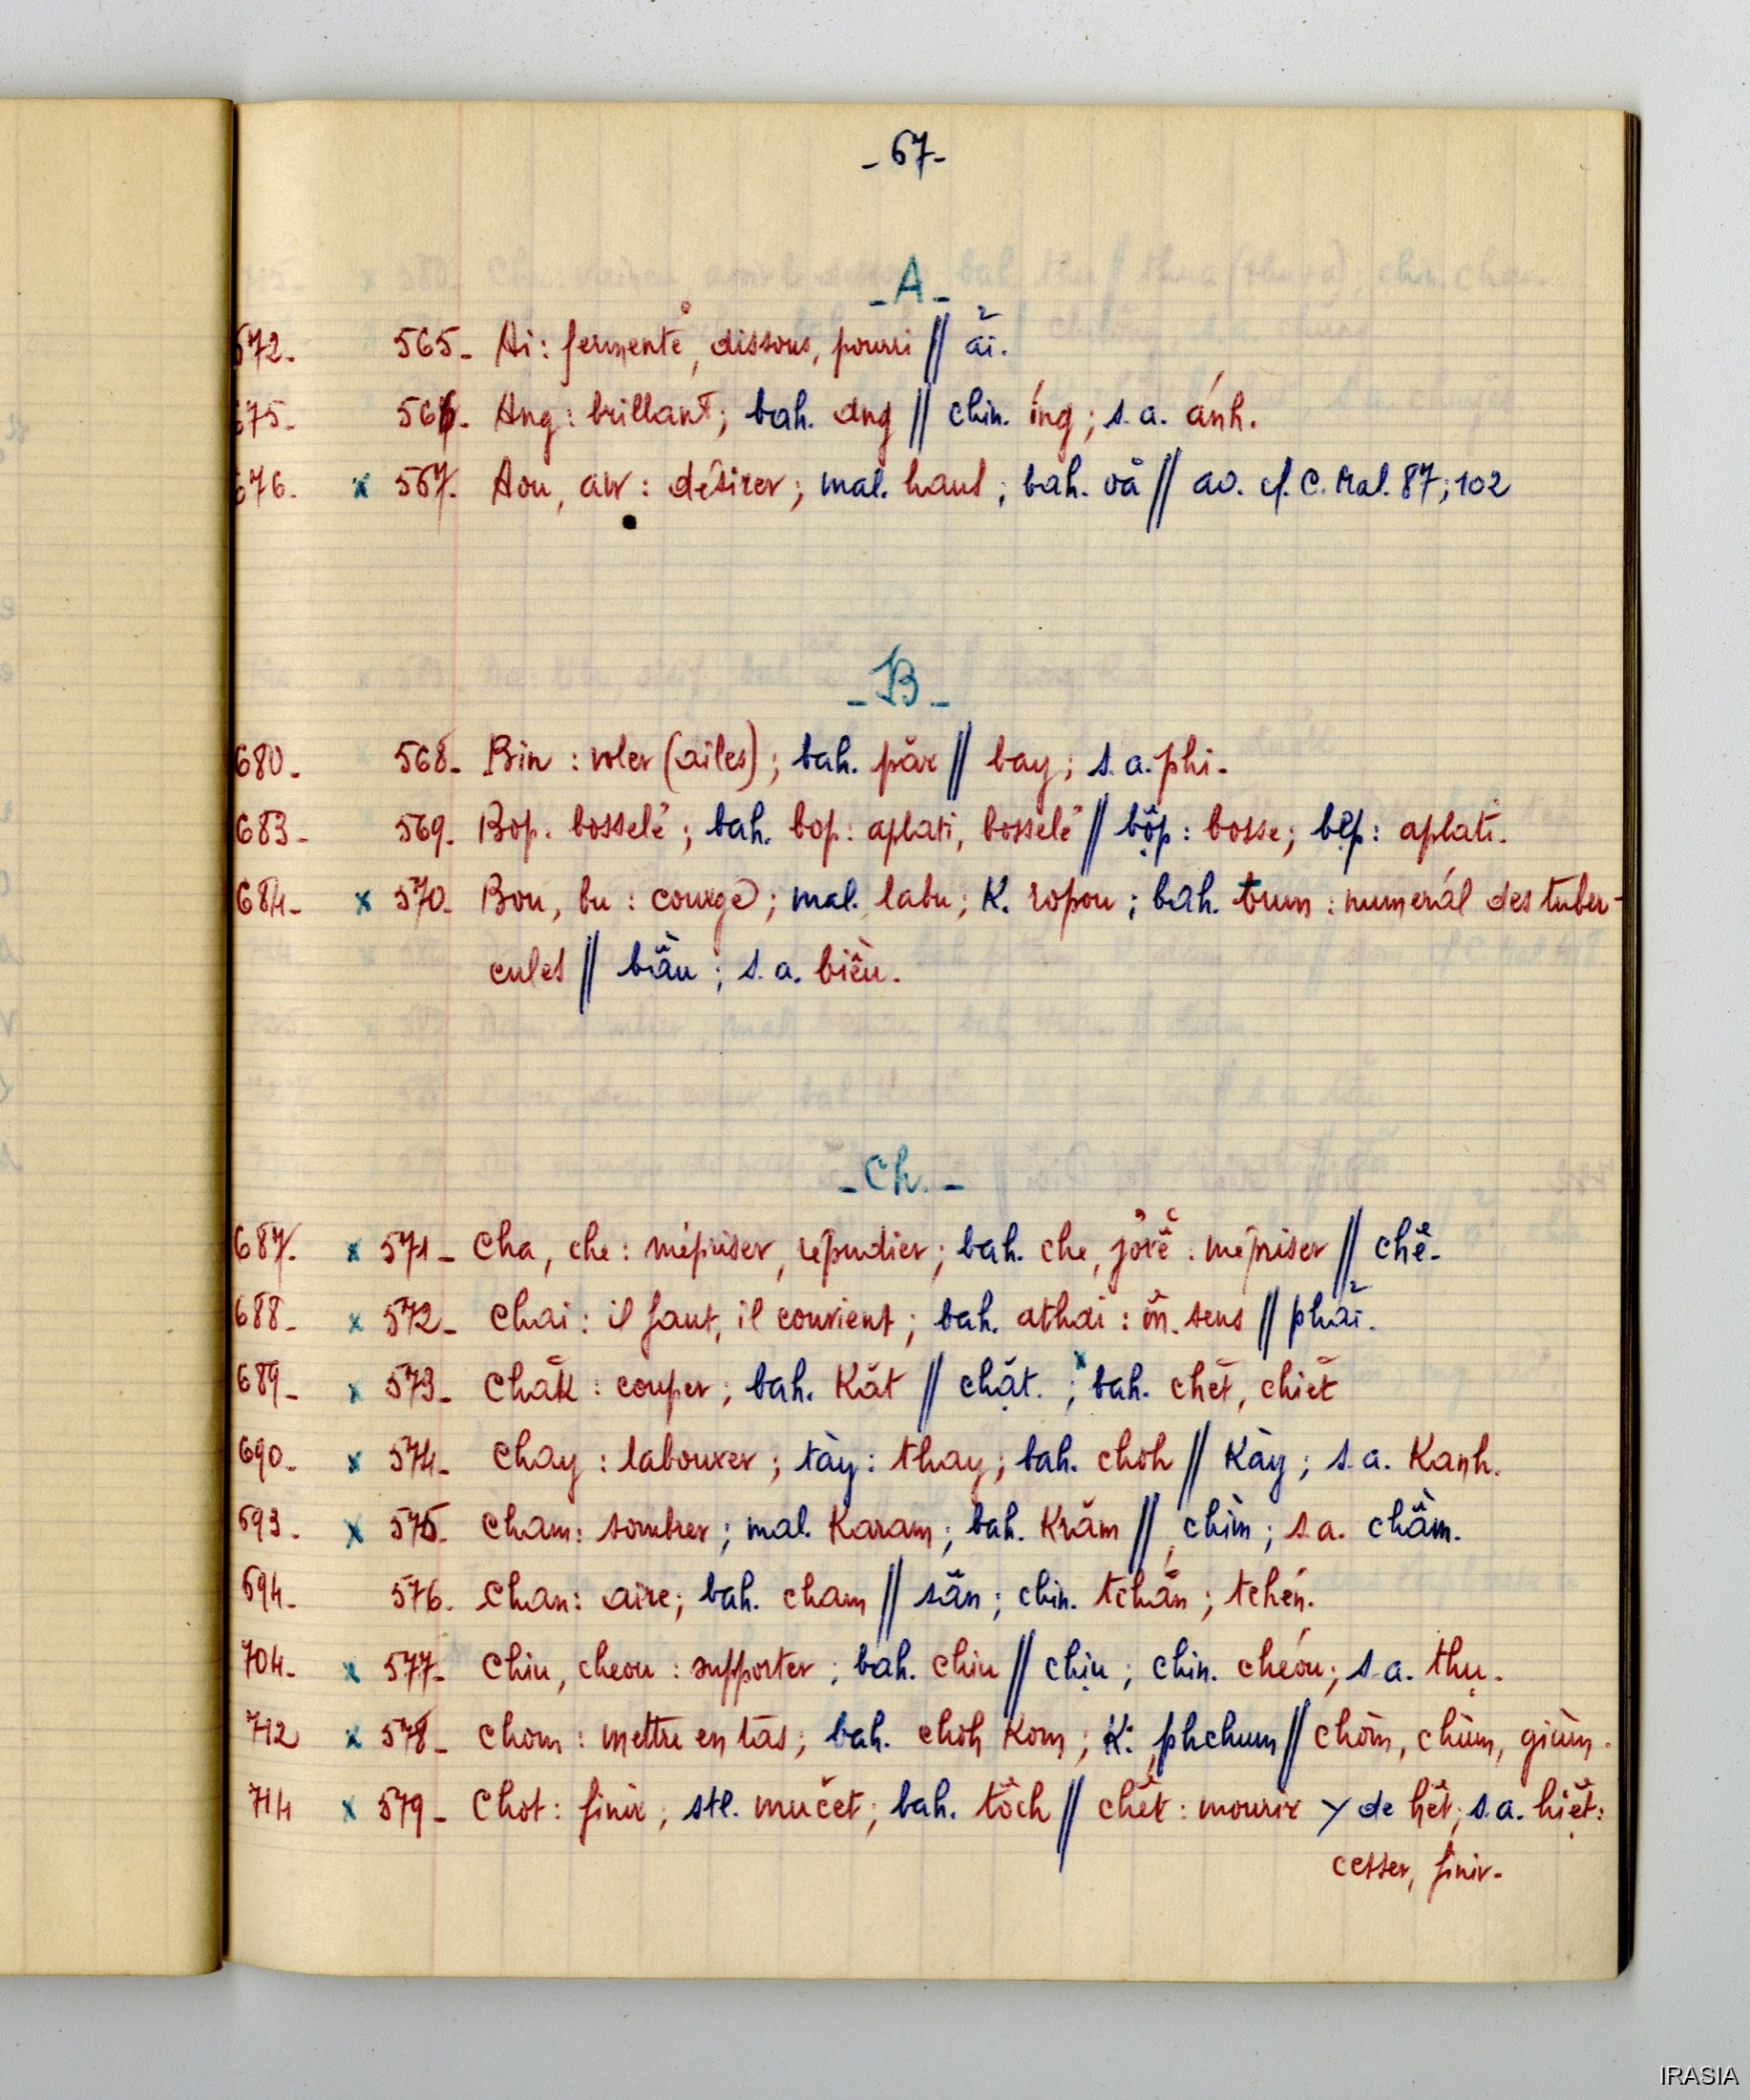 - 67 -
- A -
672. 565- Ai : fermenté, dissous, pourri // ải.
675. 566- Ang : brillant ; bah. ang // chin. íng ; s. a. ánh.
676. x 567. Aou, aw : désirer ; mal. haus ; bah. oă // ao. cf. C. Mal. 87 ; 102
- B -
680. 568. Bin : voler (ailes) ; bah. păr // bay ; s. a. phi.
683. 569. Bop. bosselé ; bah. bop : aplati, bosselé // bộp : bosse ; bẹp : aplati.
684. x 570. Bou, bu : courge ; mal. labu ; K. ropou ; bah. tum : numéral des tuber-
cules // bầu ; s. a. biều.
- Ch. -
687. x 571- Cha, che : mépriser, répudier ; bah. che, jơrĕ : mépriser // chê.
688. x 572- Chai : il faut, il convient ; bah. athai : m̂. sens // phải.
689- x 573- Chăk : couper ; bah. Kăt // chặt. ; x bah. chĕt, chiĕt
690. x 574. Chay : labourer ; tày : thay ; bah. choh // Kày ; s. a. Kanh.
693. x 575. Cham : sombrer ; mal. Karam ; bah. Krăm // chìm ; s. a. chầm.
694. 576. Chan : aire ; bah. cham // sân ; chin. tchấn ; tchén.
704. x 577- Chiu, cheou : supporter ; bah. chiu // chịu ; chin. chéou ; s. a. thụ.
712 x 578- Chom : mettre en tas ; bah. choh Kom ; K : phchum // chòm, chùm, giùm.
714 x 579- Chot : finir ; stl. mučet ; bah. tŏch // chết : mourir y de hết ; s. a. hiệt :
cesser, finir.
IRASIA